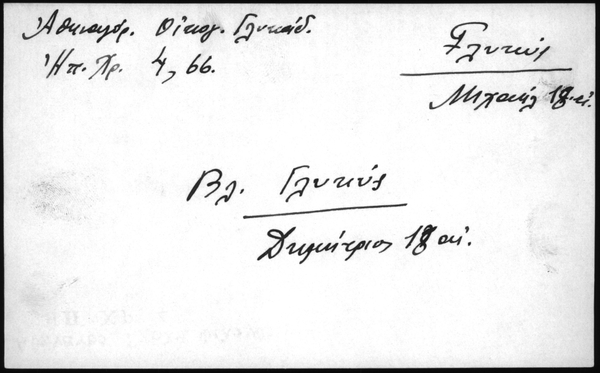 Ἀθηναγόρ. Οἰκογ. Γλυκάδ.
Ἠπ. Χρ. 4, 66.
Γλυκύς
Μιχαήλ 18 αἰ.
Βλ. Γλυκύς
Δημήτριος 18 αἰ.